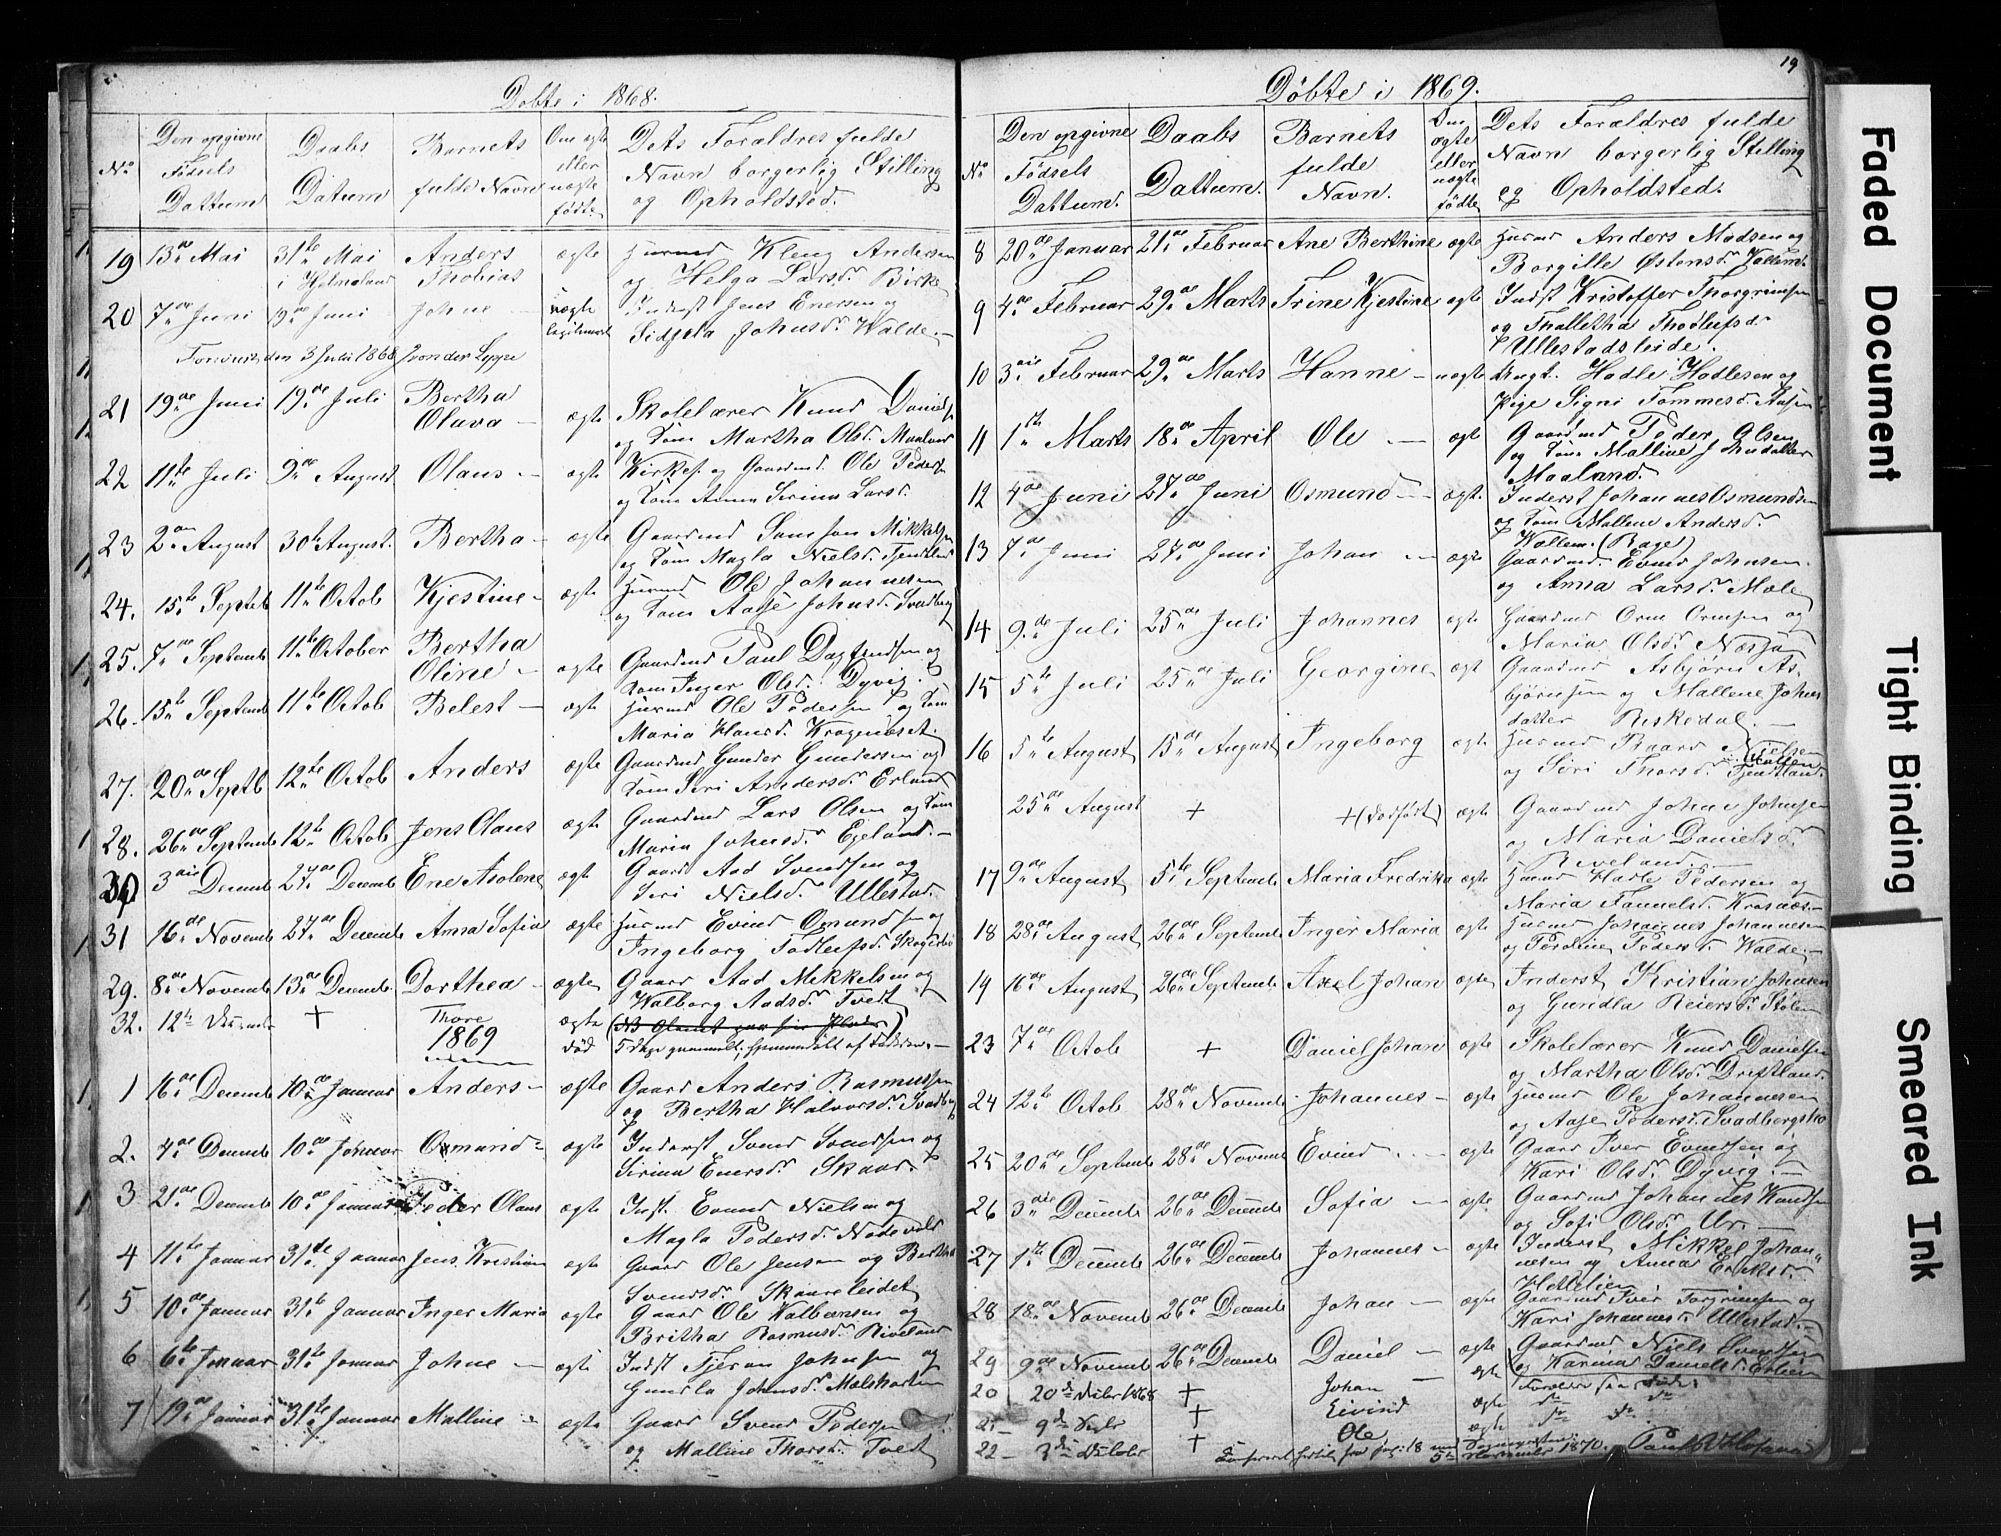 Døbte i 1868.
No
Den opgivne Fødsels Dattum
Daabs Datum
Barnets fulde Navn
Om ægte eller uægte fødte
Dets Foraldres fulde Navn borgerlig Stilling og Opholdsted.
19 13de Mai 31te Mai Anders ægte Husmd Kleng Andersen
i Hjelmeland Thobias og Helga Larsd. Birke
20 7de Juni Juni Johne uægte Inderst Jens Enersen og
legitimert Johnsd. Walde.
den 3 Juli 1868
21 19de Juni 19de Juli Bertha Skolelærer Knud Daniels
Olava ægte og Kone Martha Olsd. Maaland
22 11te Juli 9de August Olaus ægte Kirkes. og Gaardmd. Ole Peders
og Kone Anna Serina Larsd.
23 2den August 30te August. Bertha ægte Gaardmd Samson Mikkelsen
og Kone Magla Nielsd. Tjentland
24. 15te Septeb 11te Octob Kjestine ægte Husmd Ole Johannesen
og Kone Aase Johnsd. Svadberg
25. 7de Septemb 11te October Bertha Gaardmd Paul Dagfindsen og
Oline ægte Kone Inger Olsd. Dyvig.
26. 15te Septemb 11te Octob Belest ægte Husmd Ole Pedersen og Kone
Maria Hansd. Kragenæset.
27. 20de Septb 12te Octob Anders ægte Gaardmd Gunder Gundersen og
Kone Seri Andersd. Erland
28. 26de Septemb 12te Octob Jens Olaus ægte Gaardmd Lars Olsen og Kone
Maria Johnsd. Egeland.
30 3die Decemb 27de Decemb Ene Asolene ægt Gaard Aad Svendsen og
Seri Nielsd. Ullestad.
31 16de Novemb 27de Decemb Anna Sofia ægte Husmd Evind Omundsen og
Ingeborg
29. 8de Novemb 13de Decemb Dorthea ægte Gaard Aad Mekkelsen og
Walborg Aadsd. Tvedt
32. 12te Decemb + Thore ægte
død 5 Dage gammelt,
1869
1 16de Decemb 10de Januar Anders ægte Gaard Anders Rasmussen
og Bertha Halvorsd. Svadberg
2. 4de Decemb 10de Januar Osmund ægte Inderst Svend Svendsen og
Sirina Enersd. Skaar.
3 21de Decemb 10de Januar Peder Olaus ægte Inst. Evind Nielsen og
Magla Pedersd. Nodevold
4 11te Januar 31te Januar Jens Kristian ægte Gaard Ole Jensen og Bertha
Svendsd. Skaareleidet
5 10de Januar 31te Januar Inger Maria ægte Gaard Ole Kolbensen og
Britha Rasmusd. Riveland
6 6te Januar 31te Januar Johne ægte Indst Tjeran Johnsen og
Gundla Johnsd.
7 19de Januar 31te Januar Malline ægte Gaard Svend Pedersen
og Malline Thorsd. Tvedt
19
Døbte i 1869.
No
Den opgivne Fødsels Dattum.
Daabs Dattum.
Barnets fulde Navn.
Om ægte eller uægte fødte
Dets Foraldres fulde Navn borgerlig Stilling og Opholdsted.
8 20de Januar 21de Februar Ane Berthine ægte Husmd Anders Madsen og
Borgille Østensd.
9 4de Februar 29de Marts Trine Kjestine ægte Indst Kristoffer Thorgrimsen
og Thalletha
Ullestadsleide.
10 3die Februar 29de Marts Hanne uægte Ungk. Hadle Hadlesen og
Pige Signi Tommesd.
11 1te Marts 18de April Ole ægt Gaardmd Peder Olsen
og Kone Malline
Maaland.
12 4de Juni 27de Juni Osmund ægte Inderst Johannes Osmundsen
og Kone Mallene Andersd.
Wollem. (Bage)
13 7de Juni 27de Juni Johan ægte Gaardmd. Evind Johnsen
og Anna Larsd. Mæle
14 9de Juli 25de Juli Johannes ægte Gaardmd Orm Ormsen og
Maria Olsd. Næsja
15 5te Juli 25de Juli Georgine ægt Gaardmd Asbjørn As-
bjørnsen og Mallene Johns
datter Reskedal.
16 5te August 15de August Ingeborg ægte Husmd Baard Nielsen
og Siri Thorsd. Tjentland.
25de August + +(dødfødt) ægte Gaardmd Johne Johnsen
og Maria Danielsd.
Riveland.
17 9de August 5te Septemb Maria Fredrika ægte Husmd Hadle Pedersen og
Maria
18 28de August 26de Septemb Inger Maria ægte Husmd Johannes Johannesen
og Pedersd. Walde
19 16de August 26de Septemb Axel Johan ægte Inderst Kristian Johnsen
og Gundla Reiersd. Stølen
23 7de Octob + Daniel Johan ægte Skolelærer Knud Danielsen
og Martha Olsd. Driftland.
24 12te Octob 28de Novemb Johannes ægte Husmd Ole Johannesen
og Aase Pedersd. Svadbergsko
25 20de Septemb 28de Novemb Evind ægte Gaard Iver Evindsen og
Kari Olsd. Dyvig.
26 3die Decemb 26de Decemb Sofia ægte Gaardmd Johannes Knudsen
og Sofi Olsd. Ur.
27 1te Decemb 26de Decemb Johannes ægte Inderst Mikkel Johan-
nesen og Anna Eriksd.
Hetlelien
28 18de Novemb 26de Decemb Johan ægte Gaardmd Iver Torgrimsen og
Kari Johannesd. Ullestad.
29 9de Novemb 26de Decemb Daniel ægte Gaardmd Niels Svendsen
og Karina Danielsd. Erlein
20 20de Decbr 1868 + Johan ægte
21 9de + Eivind ægte
22 3de + Ole ægte
5te November 1870.
Faded Document
Tight Binding
Smeared Ink